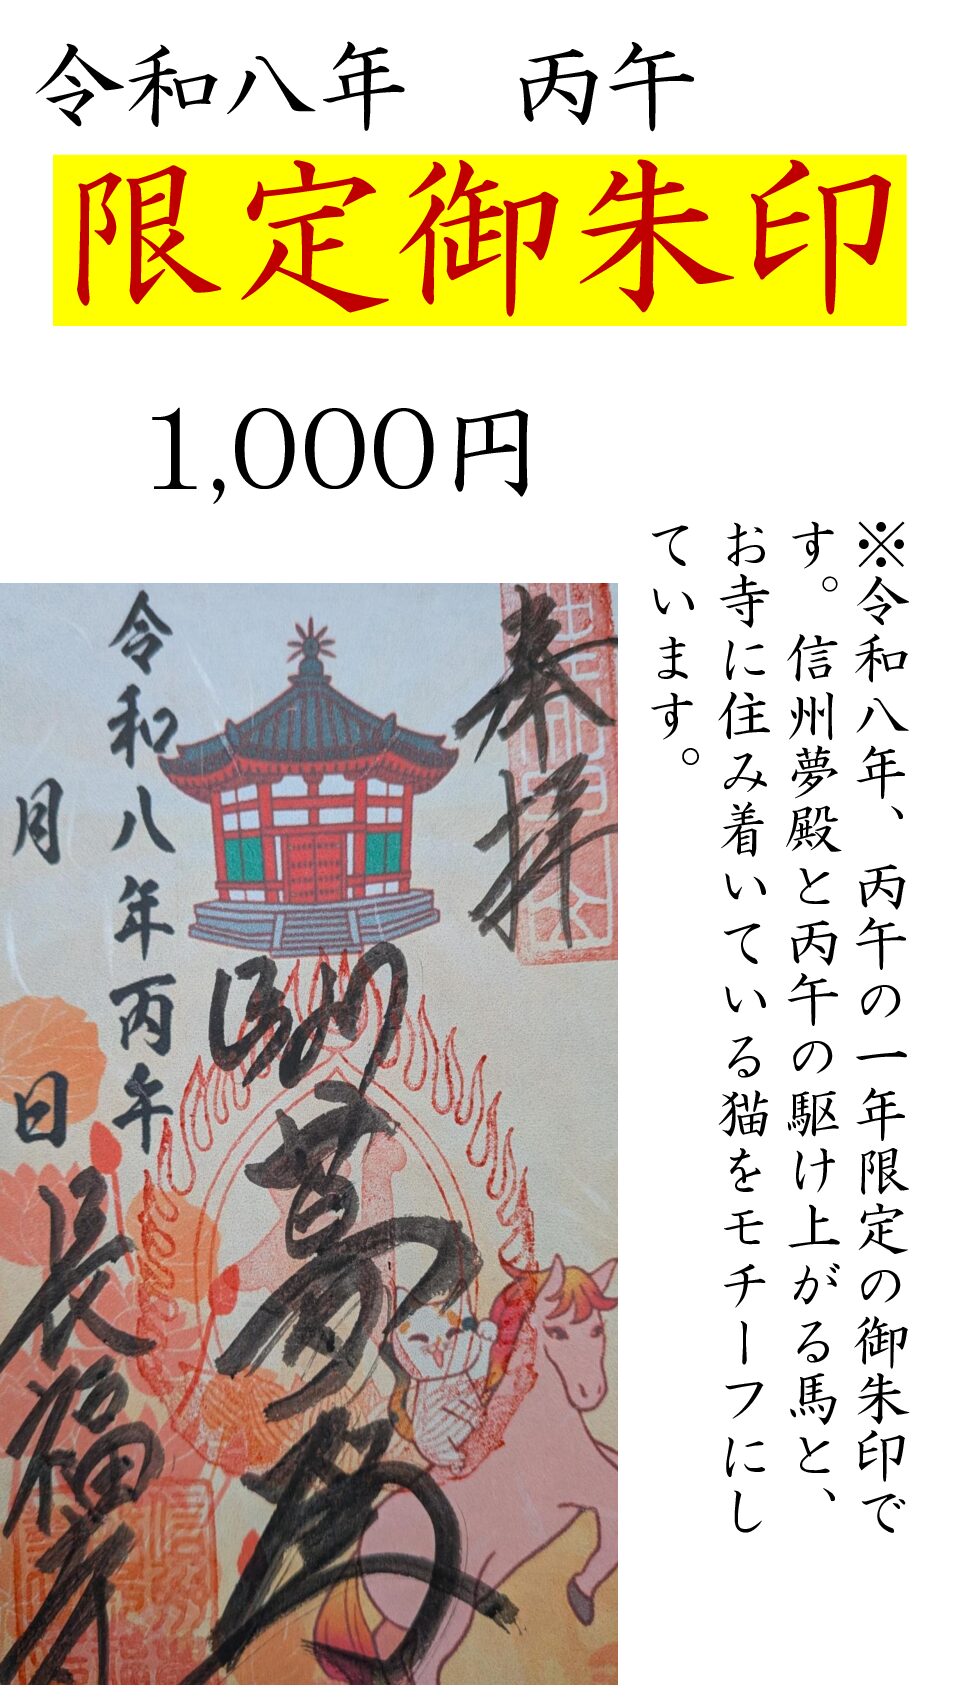 令和八年　丙午
限定御朱印
1,000円
※令和八年、丙午の一年限定の御朱印で
す。信州夢殿と丙午の駆け上がる馬と、
お寺に住み着いている猫をモチーフにし
ています。
奉拝
令和八年丙午
月　日
長福寺